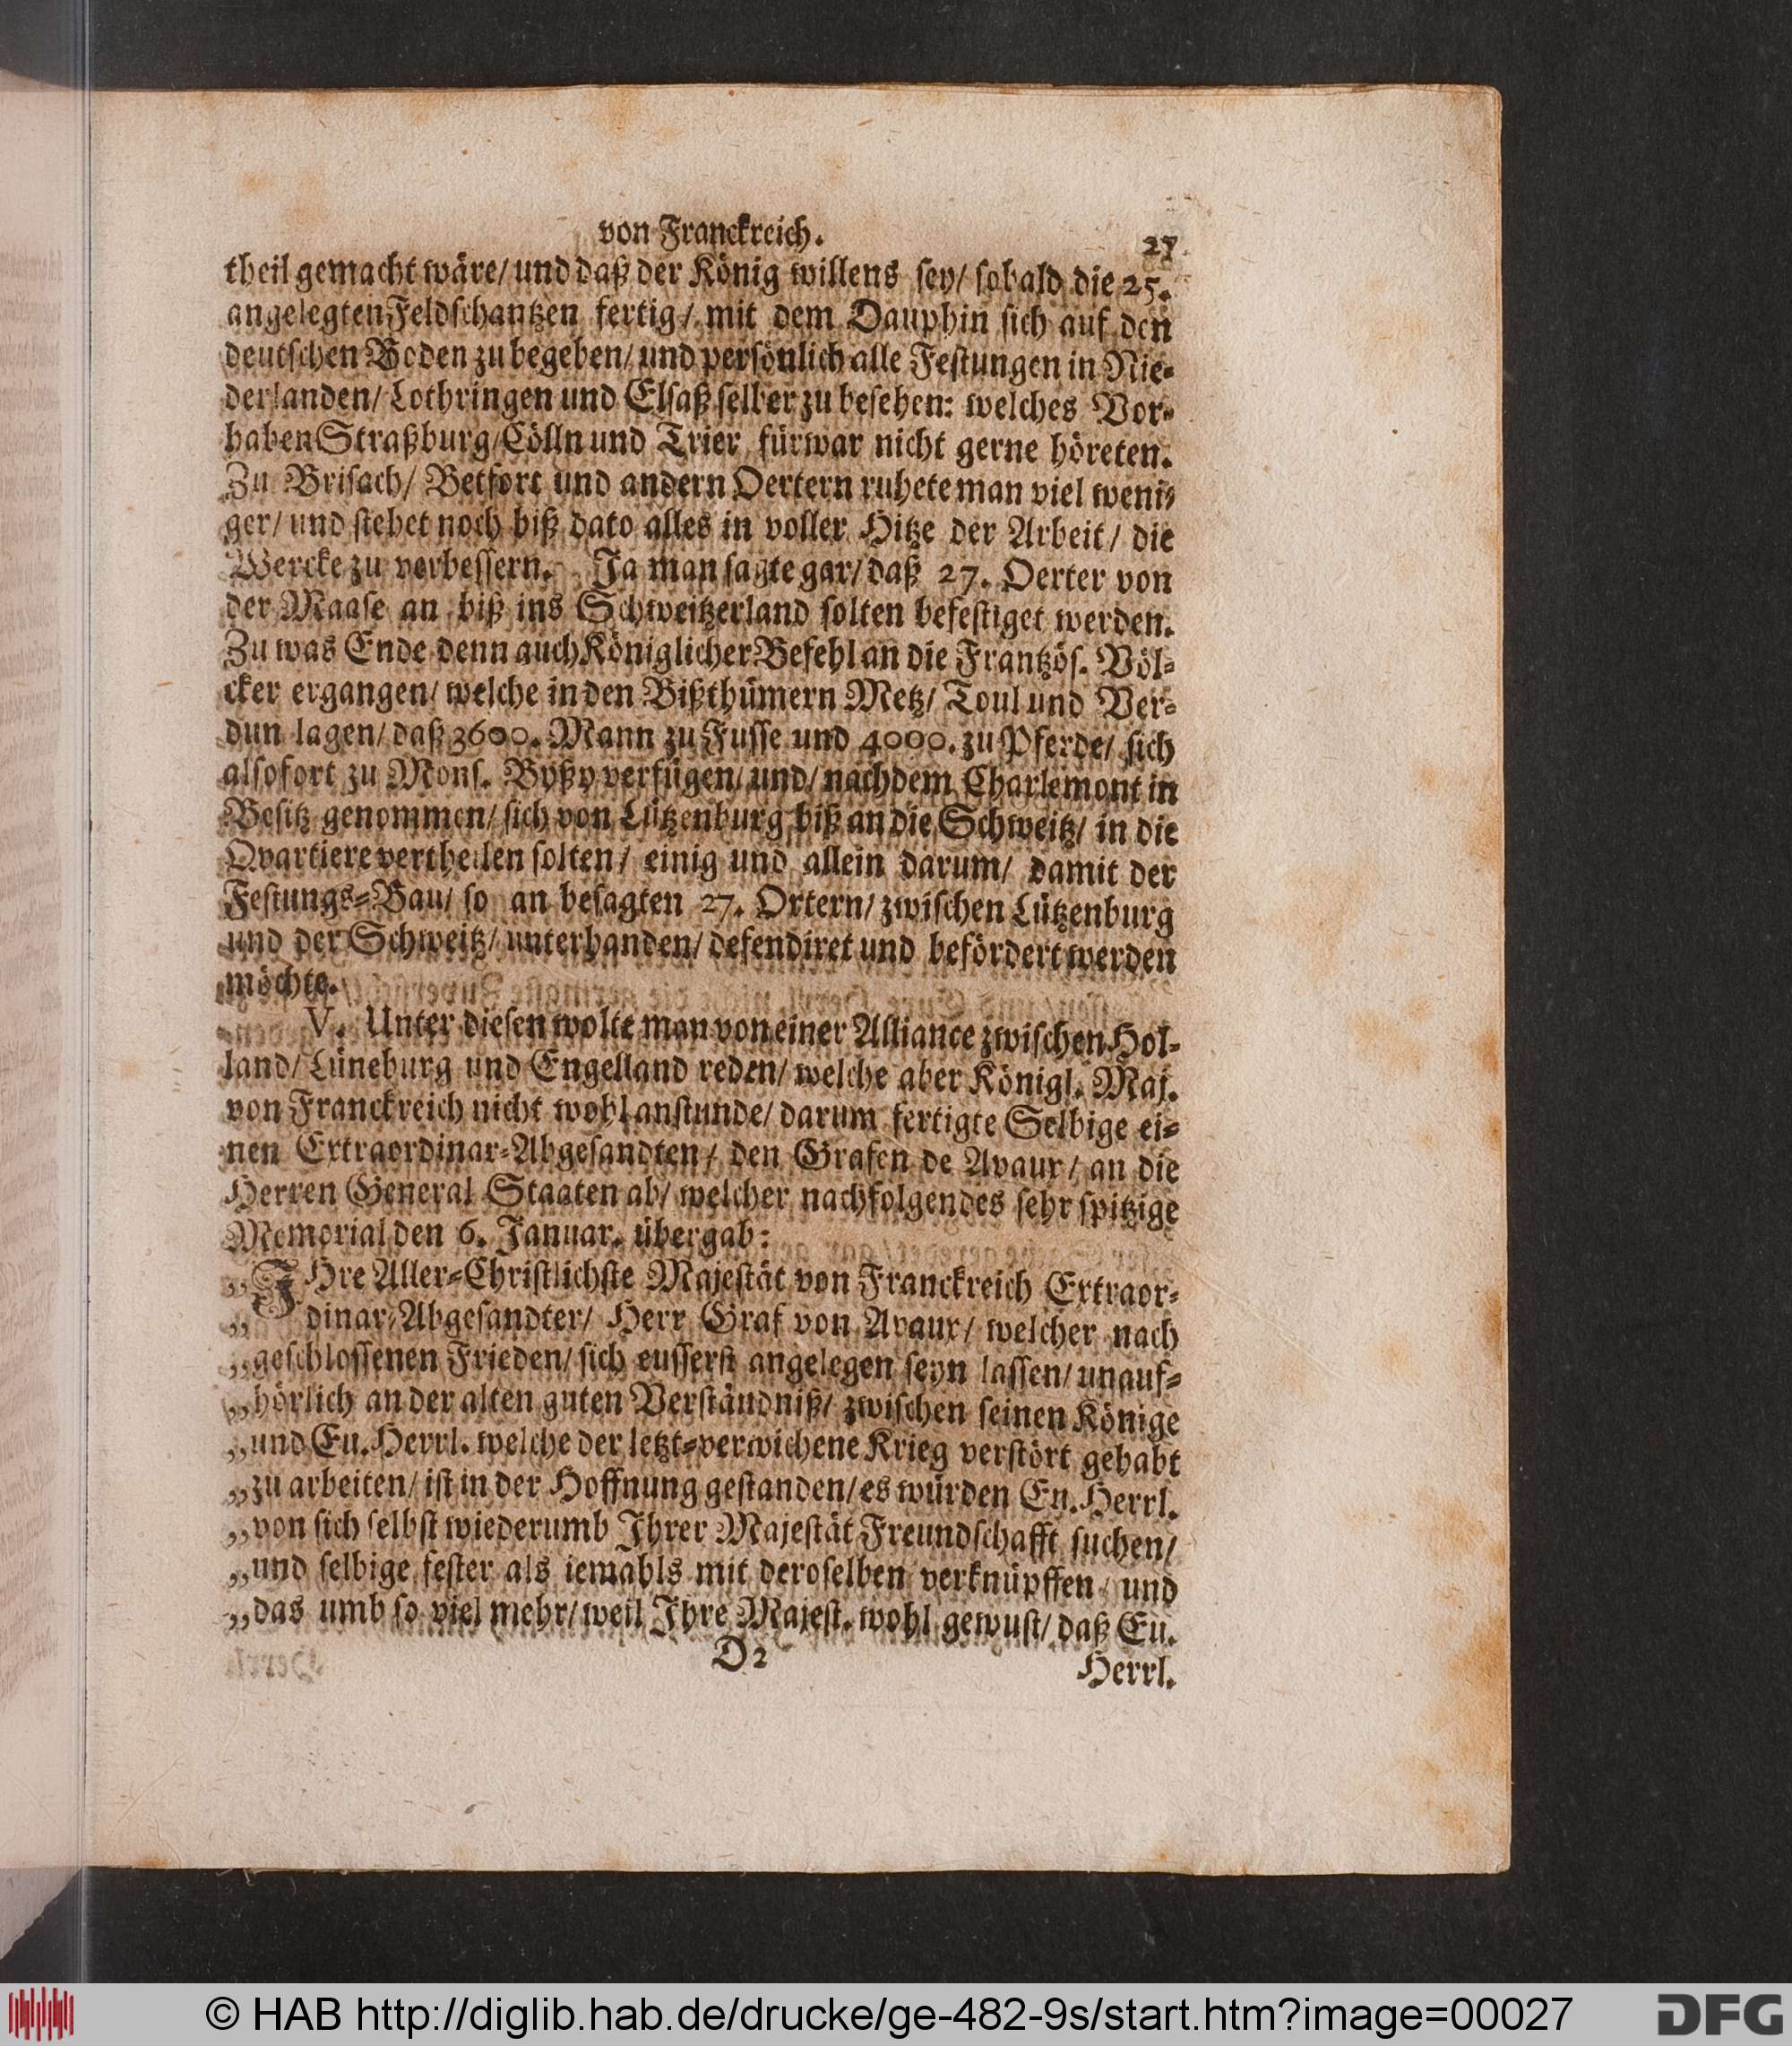 von Franckreich.
27
theil gemacht wäre/ und daß der König willens sey/ sobald die 25.
angelegten Feldschantzen fertig/ mit dem Dauphin sich auf den
deutschen Boden zu begeben/ und persönlich alle Festungen in Nie-
derlanden/ Lothringen und Elsaß selber zu besehen: welches Vor-
haben Straßburg/ Cölln und Trier fürwar nicht gerne höreten.
Zu Brisach/ Betfort und andern Oertern ruhete man viel weni-
ger/ und stehet noch biß dato alles in voller Hitze der Arbeit/ die
Wercke zu verbessern. Ja man sagte gar/ daß 27. Oerter von
der Maase an biß ins Schweitzerland solten befestiget werden.
Zu was Ende denn auch Königlicher Befehl an die Frantzös. Völ-
cker ergangen/ welche in den Bißthümern Metz/ Toul und Ver-
dun lagen/ daß 3600. Mann zu Fusse und 4000. zu Pferde/ sich
alsofort zu Mons. Byßy verfügen/ und/ nachdem Charlemont in
Besitz genommen/ sich von Lützenburg biß an die Schweitz/ in die
Qvartiere vertheilen solten/ einig und allein darum/ damit der
Festungs-Bau/ so an besagten 27. Ortern/ zwischen Lützenburg
und der Schweitz/ unterhanden/ defendiret und befördert werden
möchte.
V. Unter diesen wolte man von einer Alliance zwischen Hol-
land/ Lüneburg und Engelland reden/ welche aber Königl. Maj.
von Franckreich nicht wohl anstunde/ darum fertigte Selbige ei-
nen Extraordinar-Abgesandten/ den Grafen de Avaux/ an die
Herren General Staaten ab/ welcher nachfolgendes sehr spitzige
Memorial den 6. Januar. übergab:
„IHre Aller-Christlichste Majestät von Franckreich Extraor-
„dinar-Abgesandter/ Herr Graf von Avaux/ welcher nach
„geschlossenen Frieden/ sich eusserst angelegen seyn lassen/ unauf-
„hörlich an der alten guten Verständniß/ zwischen seinen Könige
„und Eu. Herrl. welche der letzt-verwichene Krieg verstört gehabt
„zu arbeiten/ ist in der Hoffnung gestanden/ es würden Eu. Herrl.
„von sich selbst wiederumb Ihrer Majestät Freundschafft suchen/
„und selbige fester als iemahls mit deroselben verknüpffen/ und
„das umb so viel mehr/ weil Ihre Majest. wohl gewust/ daß Eu.
D2
Herrl.
© HAB http://diglib.hab.de/drucke/ge-482-9s/start.htm?image=00027
DFG